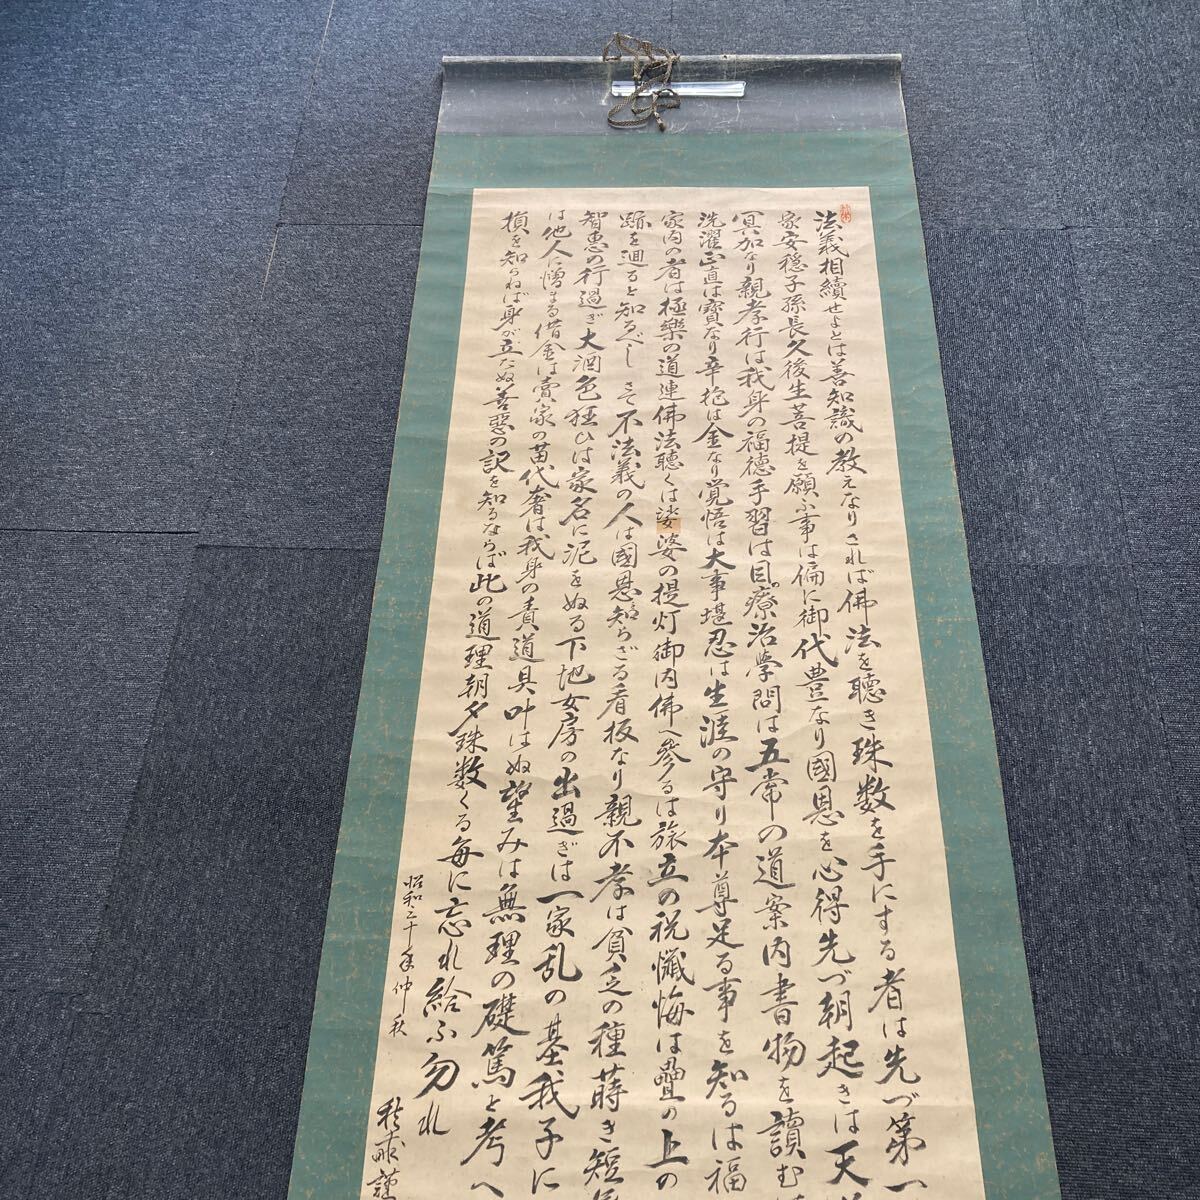 法義相續せよとは善知識の教えなりされば佛法を聴き珠数を手にする者は先づ第一
家安穏子孫長久後生菩提を願ふ事は偏に御代豊なり國恩を心得先づ朝起きは天
冥加なり親孝行は我身の福徳手習は目療治學問は五常の道案内書物を讀む
洗濯正直は寳なり辛抱は金なり覚悟は大事堪忍は生涯の守り本尊足る事を知るは福
家内の者は極樂の道連佛法聴くは娑婆の提灯御内佛へ参るは旅立の祝懺悔は疊の上の
跡を廻ると知るべしさて不法義の人は國恩知らざる看板なり親不孝は貧乏の種蒔き短
智惠の行過ぎ大酒色狂ひは家名に泥をぬる下地女房の出過ぎは一家乱の基我子に
は他人に憎まる借金は賣家の苗代奢は我身の責道具叶はぬ望みは無理の礎篤と考へ
損を知らねば身が立たぬ善惡の訳を知るならば此の道理朝夕珠数くる毎に忘れ給ふ勿れ
昭和二十年仲秋
謹